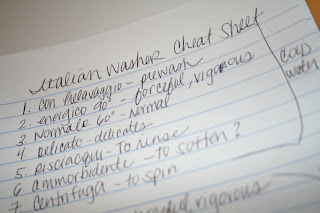 Italian Washer Cheat Sheet
1. con prelavaggio - prewash
2. energico 90° - forceful, vigorous
3 Normale 60° - normal
4 Delicato - delicatts
5 Risciacqui - To rinse
6 ammorbidente - to soften?
7 Centrifuga - to spin
cold
water
vigorous